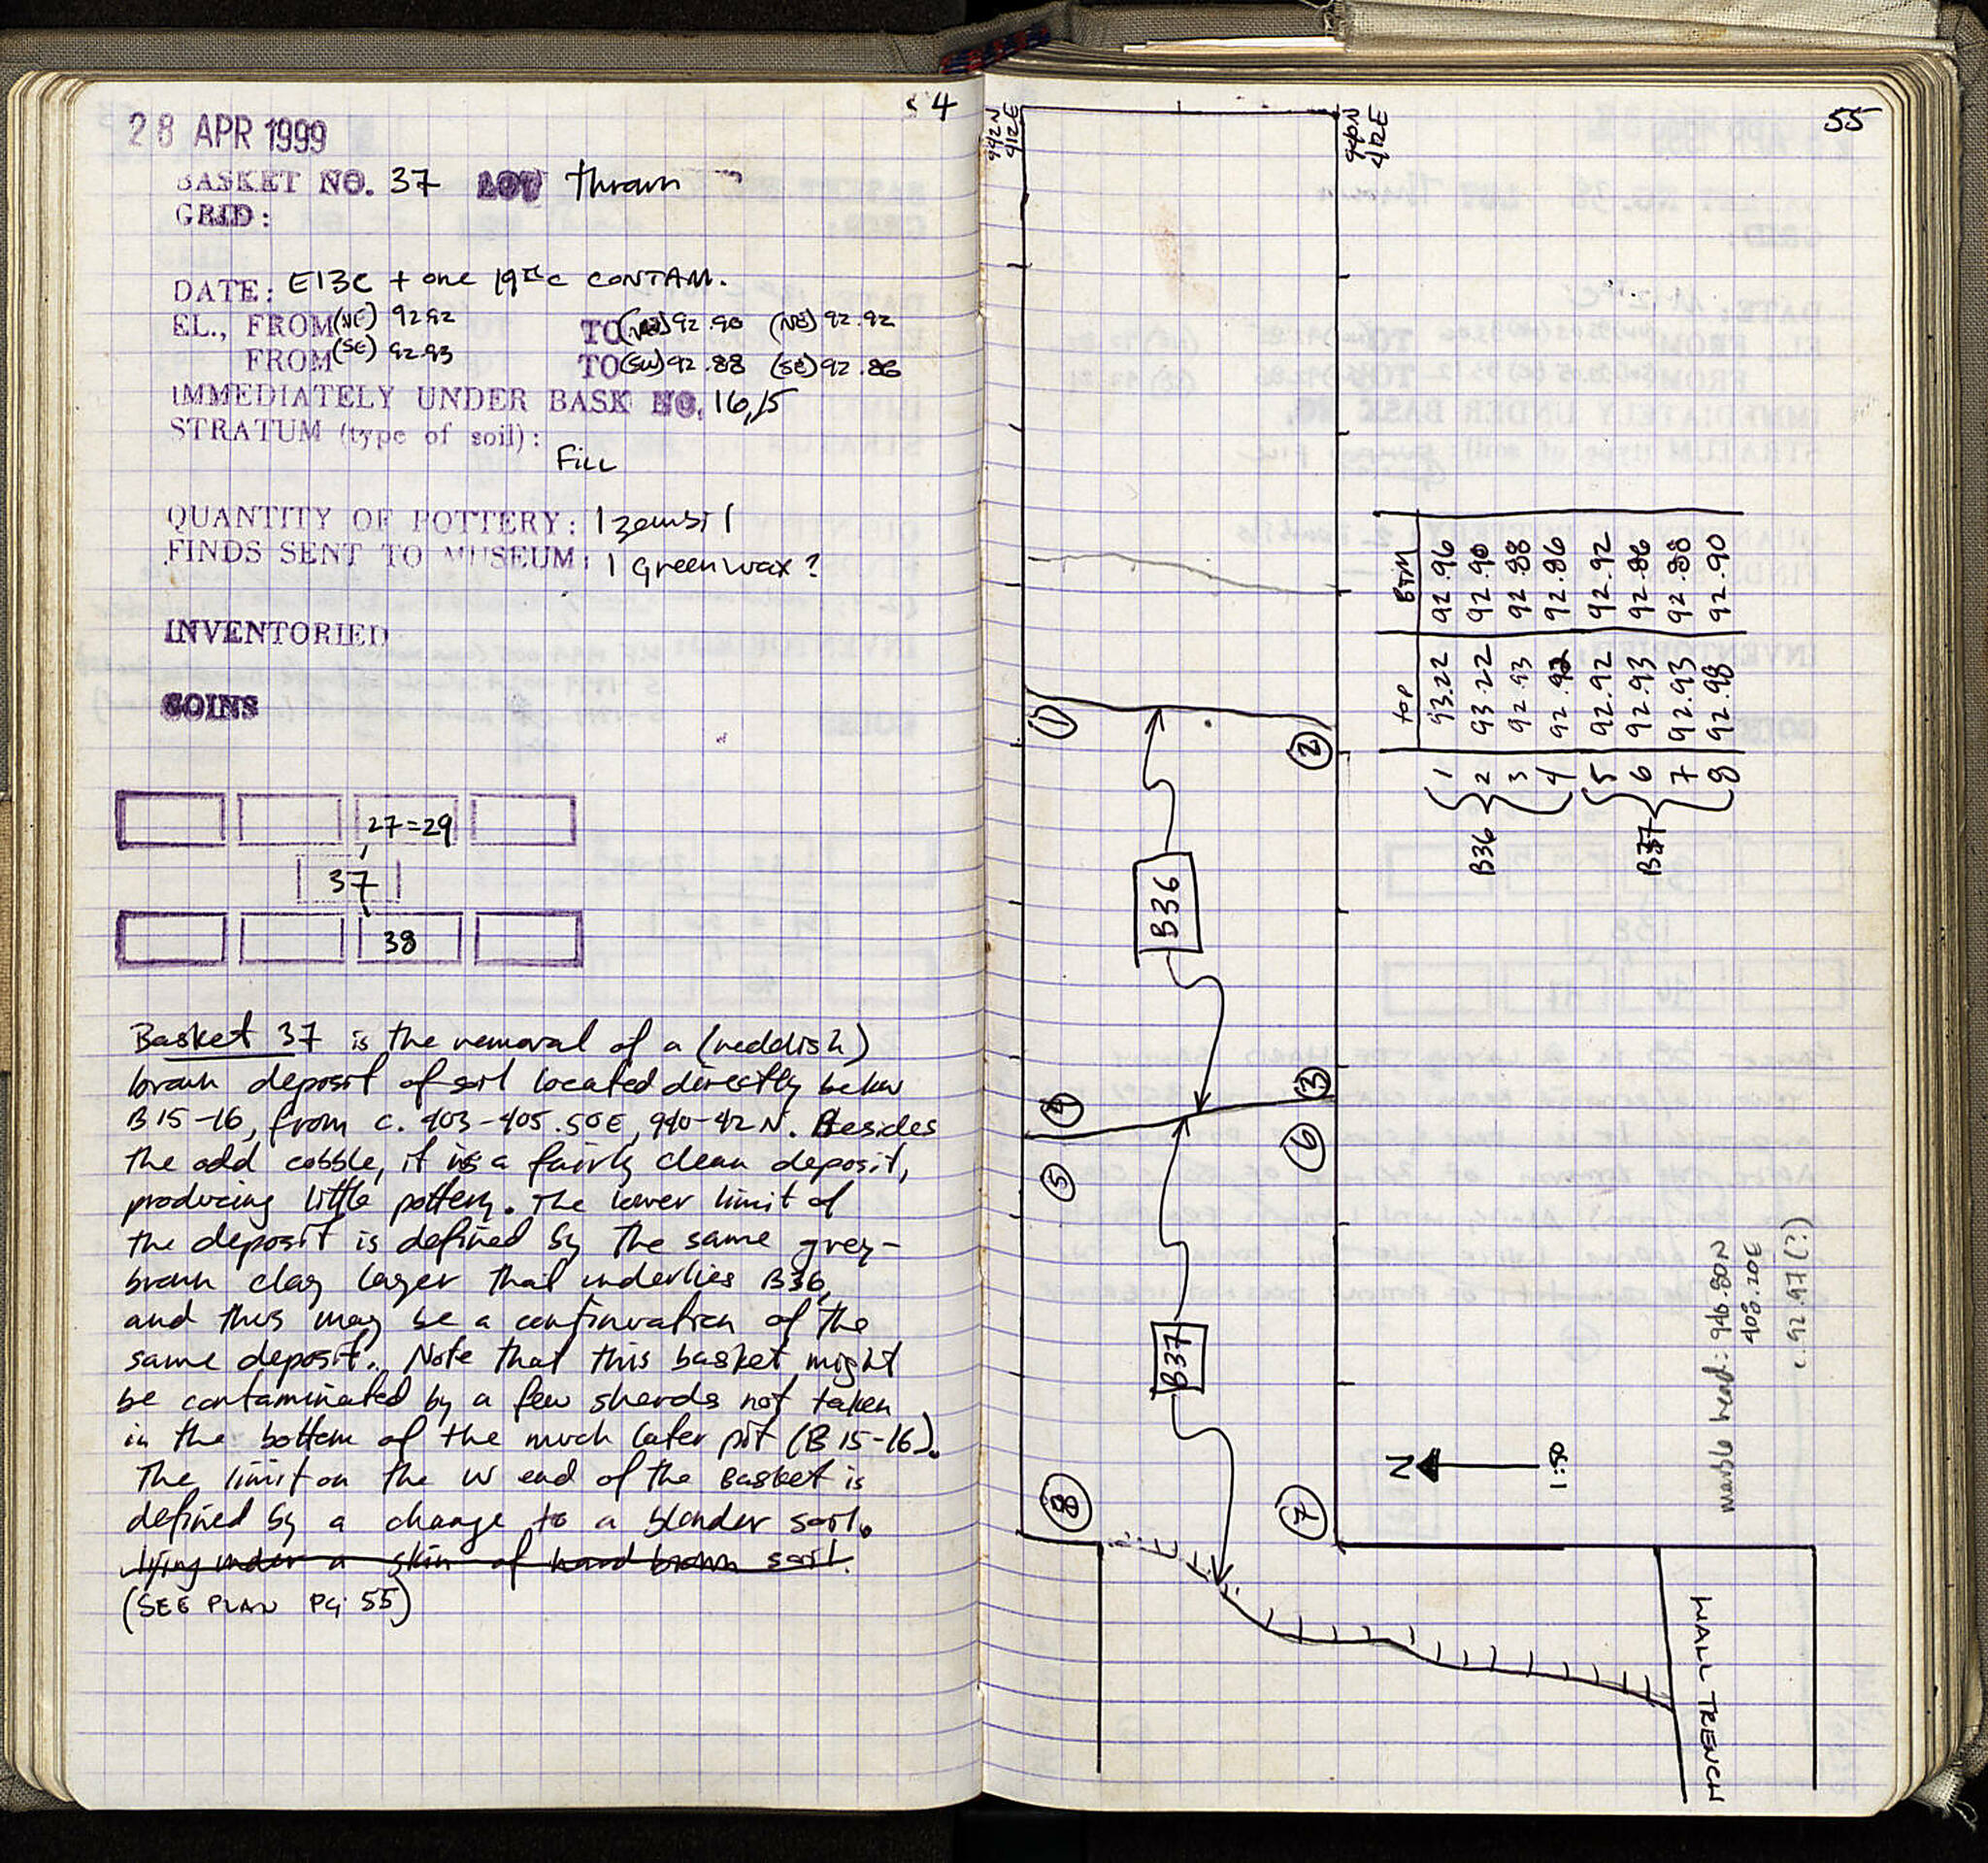 54
28 APR 1999
BASKET NO. 37 LOT thrown
GRID:
DATE: E13C + one 19th c CONTAM.
EL., FROM (NE) 92.92 TO (NW) 92.90 (NE) 92.92
FROM (SE) 92.93 TO (SW) 92.88 (SE) 92.86
IMMEDIATELY UNDER BASK NO. 16,15
STRATUM (type of soil):
FILL
QUANTITY OF POTTERY: 1 zembil
FINDS SENT TO MUSEUM: 1 Green wax?
INVENTORIED
COINS
27=29
37
38
Basket 37 is the removal of a (reddish)
brown deposit of soil located directly below
B15-16, from c. 403-405.50E, 940-42N. Besides
the odd cobble, it is a fairly clean deposit,
producing little pottery. The lower limit of
the deposit is defined by the same grey-
brown clay layer that underlies B36,
and thus may be a continuation of the
same deposit. Note that this basket might
be contaminated by a few sherds not taken
in the bottom of the much later pit (B15-16).
The limit on the W end of the Basket is
defined by a change to a blonder soil.
lying under a skin of hard brown soil.
(SEE PLAN PG 55)
55
942N
412E
940N
412E
top BTM
1 93.22 92.96
2 93.22 92.90
3 92.93 92.88
4 92.92 92.86
5 92.92 92.92
6 92.93 92.86
7 92.93 92.88
8 92.98 92.90
B36
B37
1
2
B36
4
3
5
6
B37
8
7
N
1:50
marble head: 946.80N
408.20E
c. 92.97(?)
WALL TRENCH